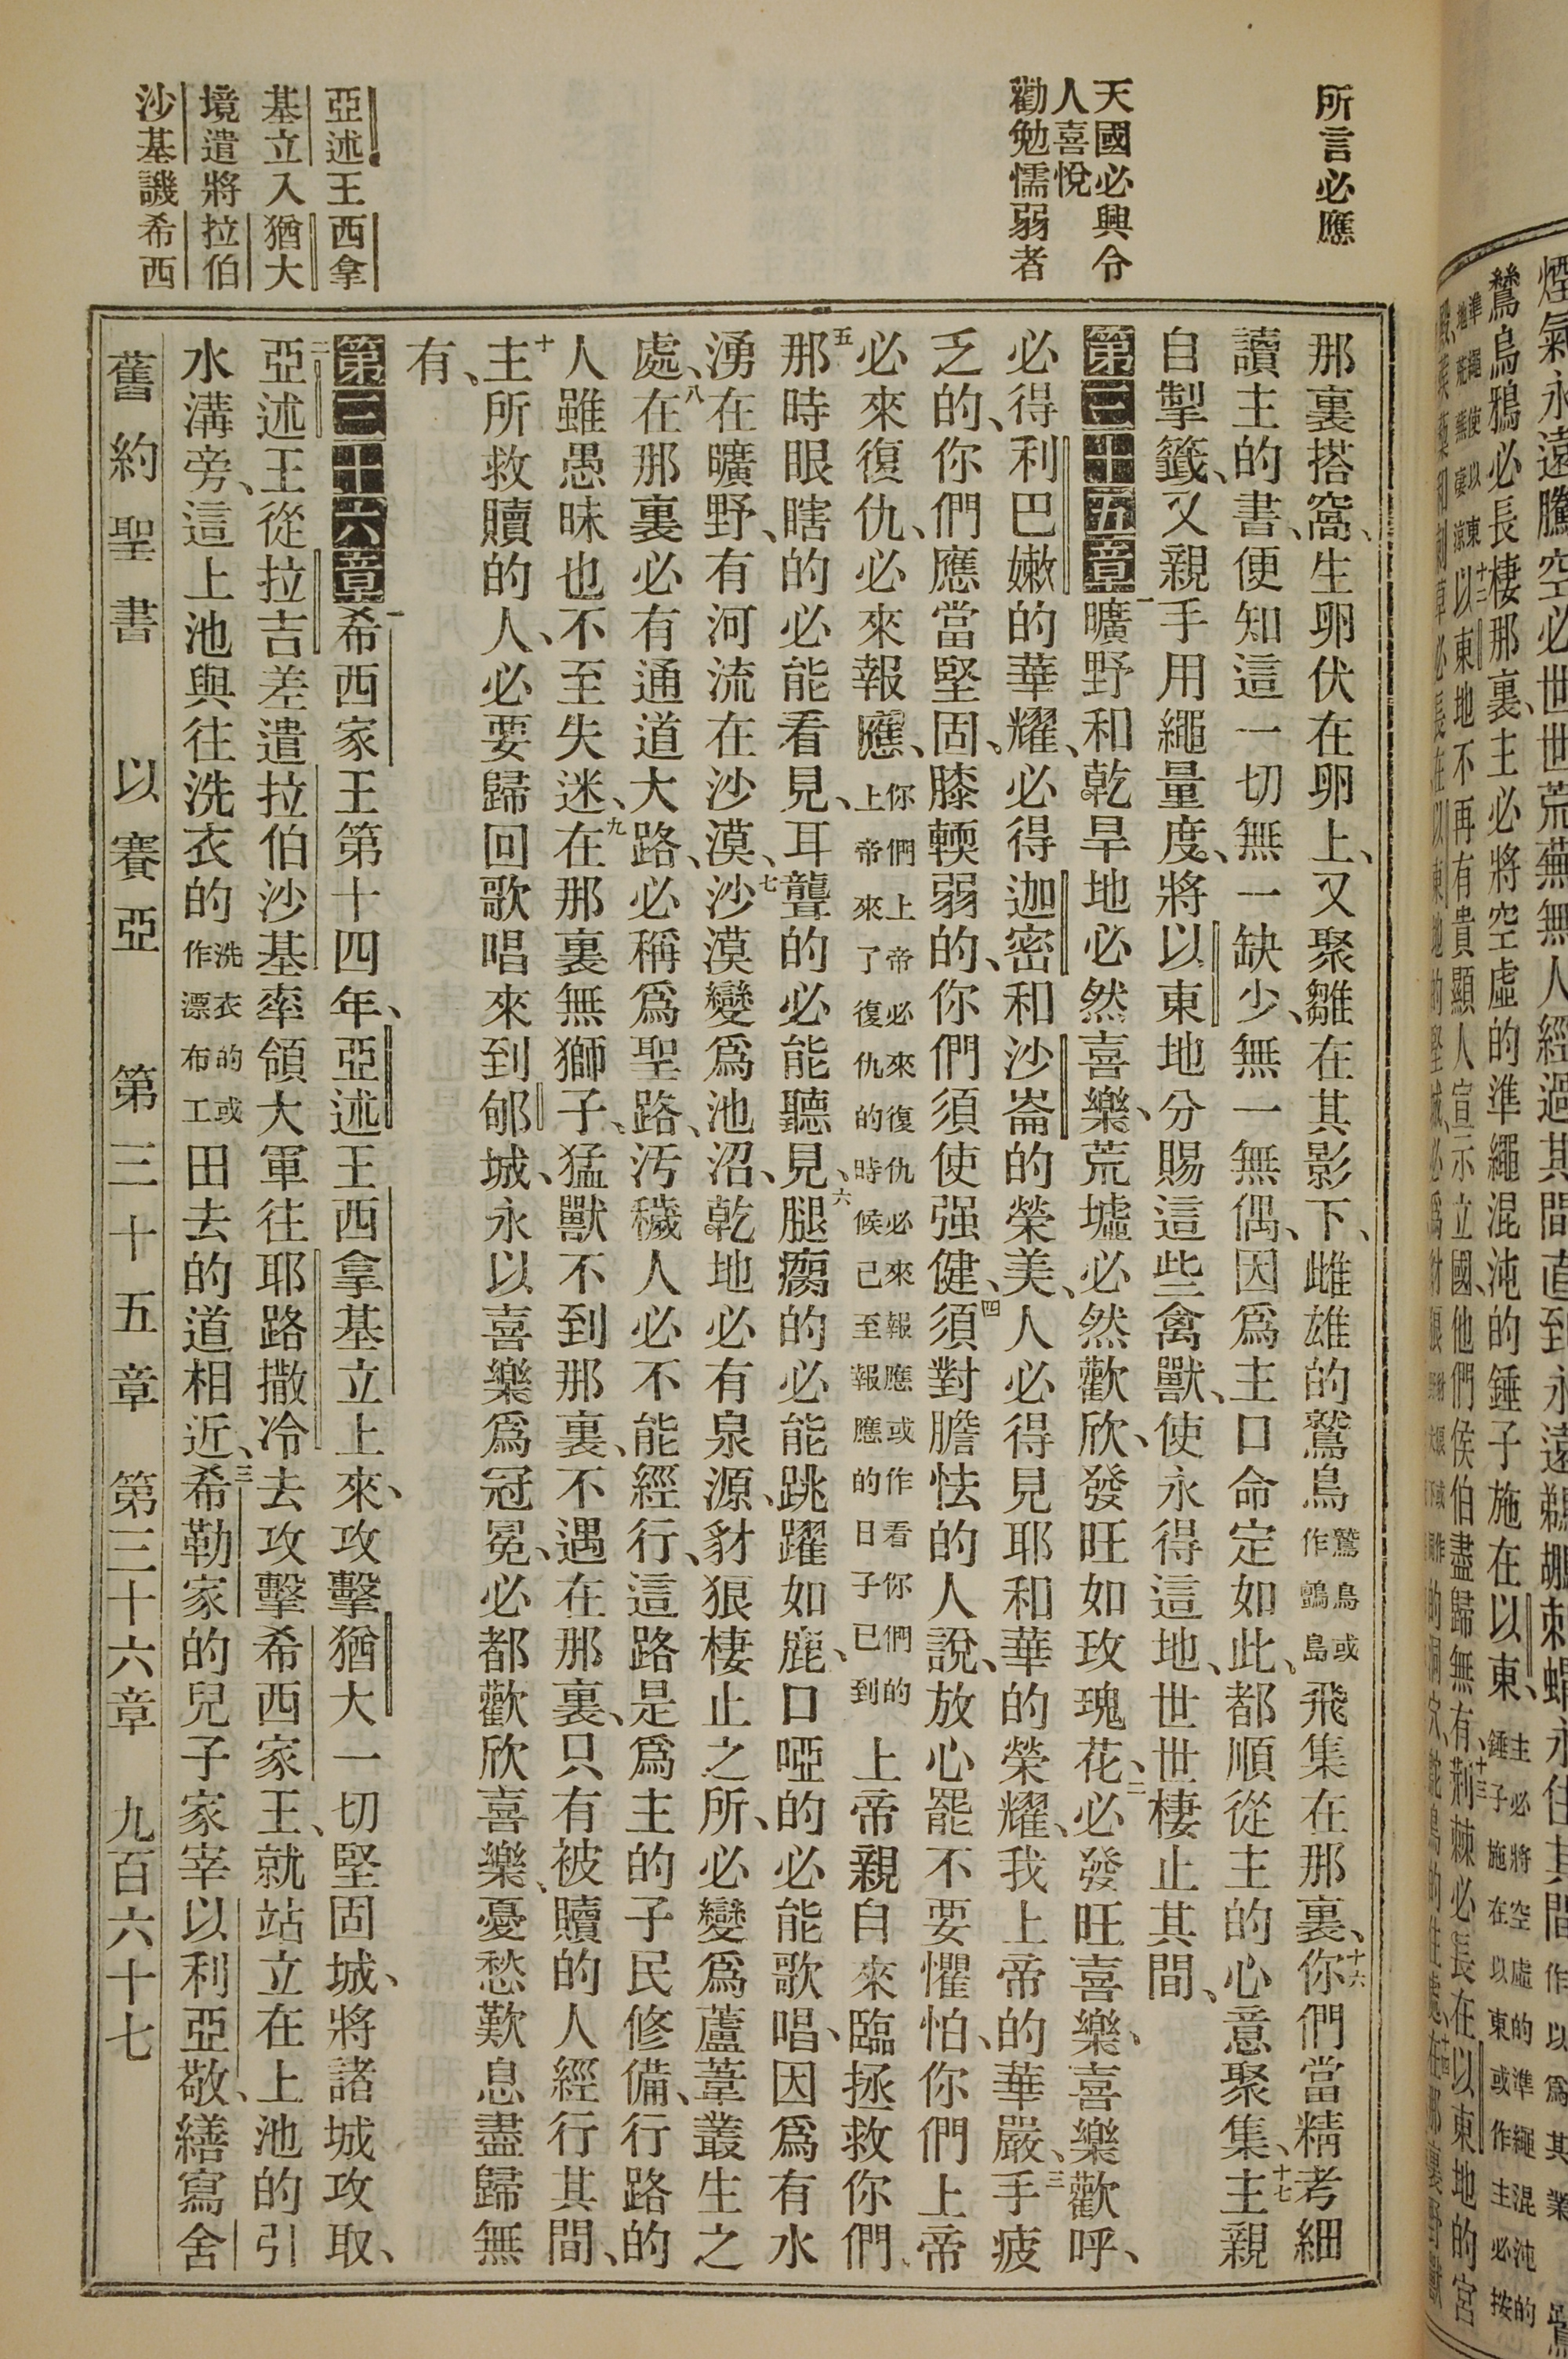 所言必應
天國必興令
人喜悅
勸勉懦弱者
亞述王西拿
基立入猶大
境遣將拉伯
沙基譏希西
那裏搭窩、生卵伏在卵上、又聚雛在其影下、雌雄的鷲鳥鷲鳥或作鷂鳥飛集在那裏、十六你們當精考細
讀主的書、便知這一切無一缺少、無一無偶、因爲主口命定如此、都順從主的心意聚集、十七主親
自掣籤、又親手用繩量度、將以東地分賜這些禽獸、使永得這地、世世棲止其間、
第三十五章一曠野和乾旱地必然喜樂、荒墟必然歡欣、發旺如玫瑰花、二必發旺喜樂、喜樂歡呼、
必得利巴嫩的華耀、必得迦密和沙崙的榮美、人必得見耶和華的榮耀、我上帝的華嚴、三手疲
乏的、你們應當堅固、膝輭弱的、你們須使强健、四須對膽怯的人說、放心罷不要懼怕、你們上帝
必來復仇、必來報應、你們上帝必來復仇必來報應或作看你們的上帝來了復仇的時候已至報應的日子已到上帝親自來臨拯救你們、
五那時眼瞎的必能看見、耳聾的必能聽見、六腿瘸的必能跳躍如鹿、口啞的必能歌唱、因爲有水
湧在曠野、有河流在沙漠、七沙漠變爲池沼、乾地必有泉源、豺狼棲止之所、必變爲蘆葦叢生之
處、八在那裏必有通道大路、必稱爲聖路、汚穢人必不能經行、這路是爲主的子民修備、行路的
人雖愚昧也不至失迷、九在那裏無獅子、猛獸不到那裏、不遇在那裏、只有被贖的人經行其間、
十主所救贖的人、必要歸回歌唱來到郇城、永以喜樂爲冠冕、必都歡欣喜樂、憂愁歎息盡歸無
有、
第三十六章一希西家王第十四年、亞述王西拿基立上來、攻擊猶大一切堅固城、將諸城攻取、
二亞述王從拉吉差遣拉伯沙基率領大軍往耶路撒冷去攻擊希西家王、就站立在上池的引
水溝旁、這上池與往洗衣的洗衣的或作漂布工田去的道相近、三希勒家的兒子家宰以利亞敬、繕寫舍
舊約聖書 以賽亞 第三十五章 第三十六章 九百六十七